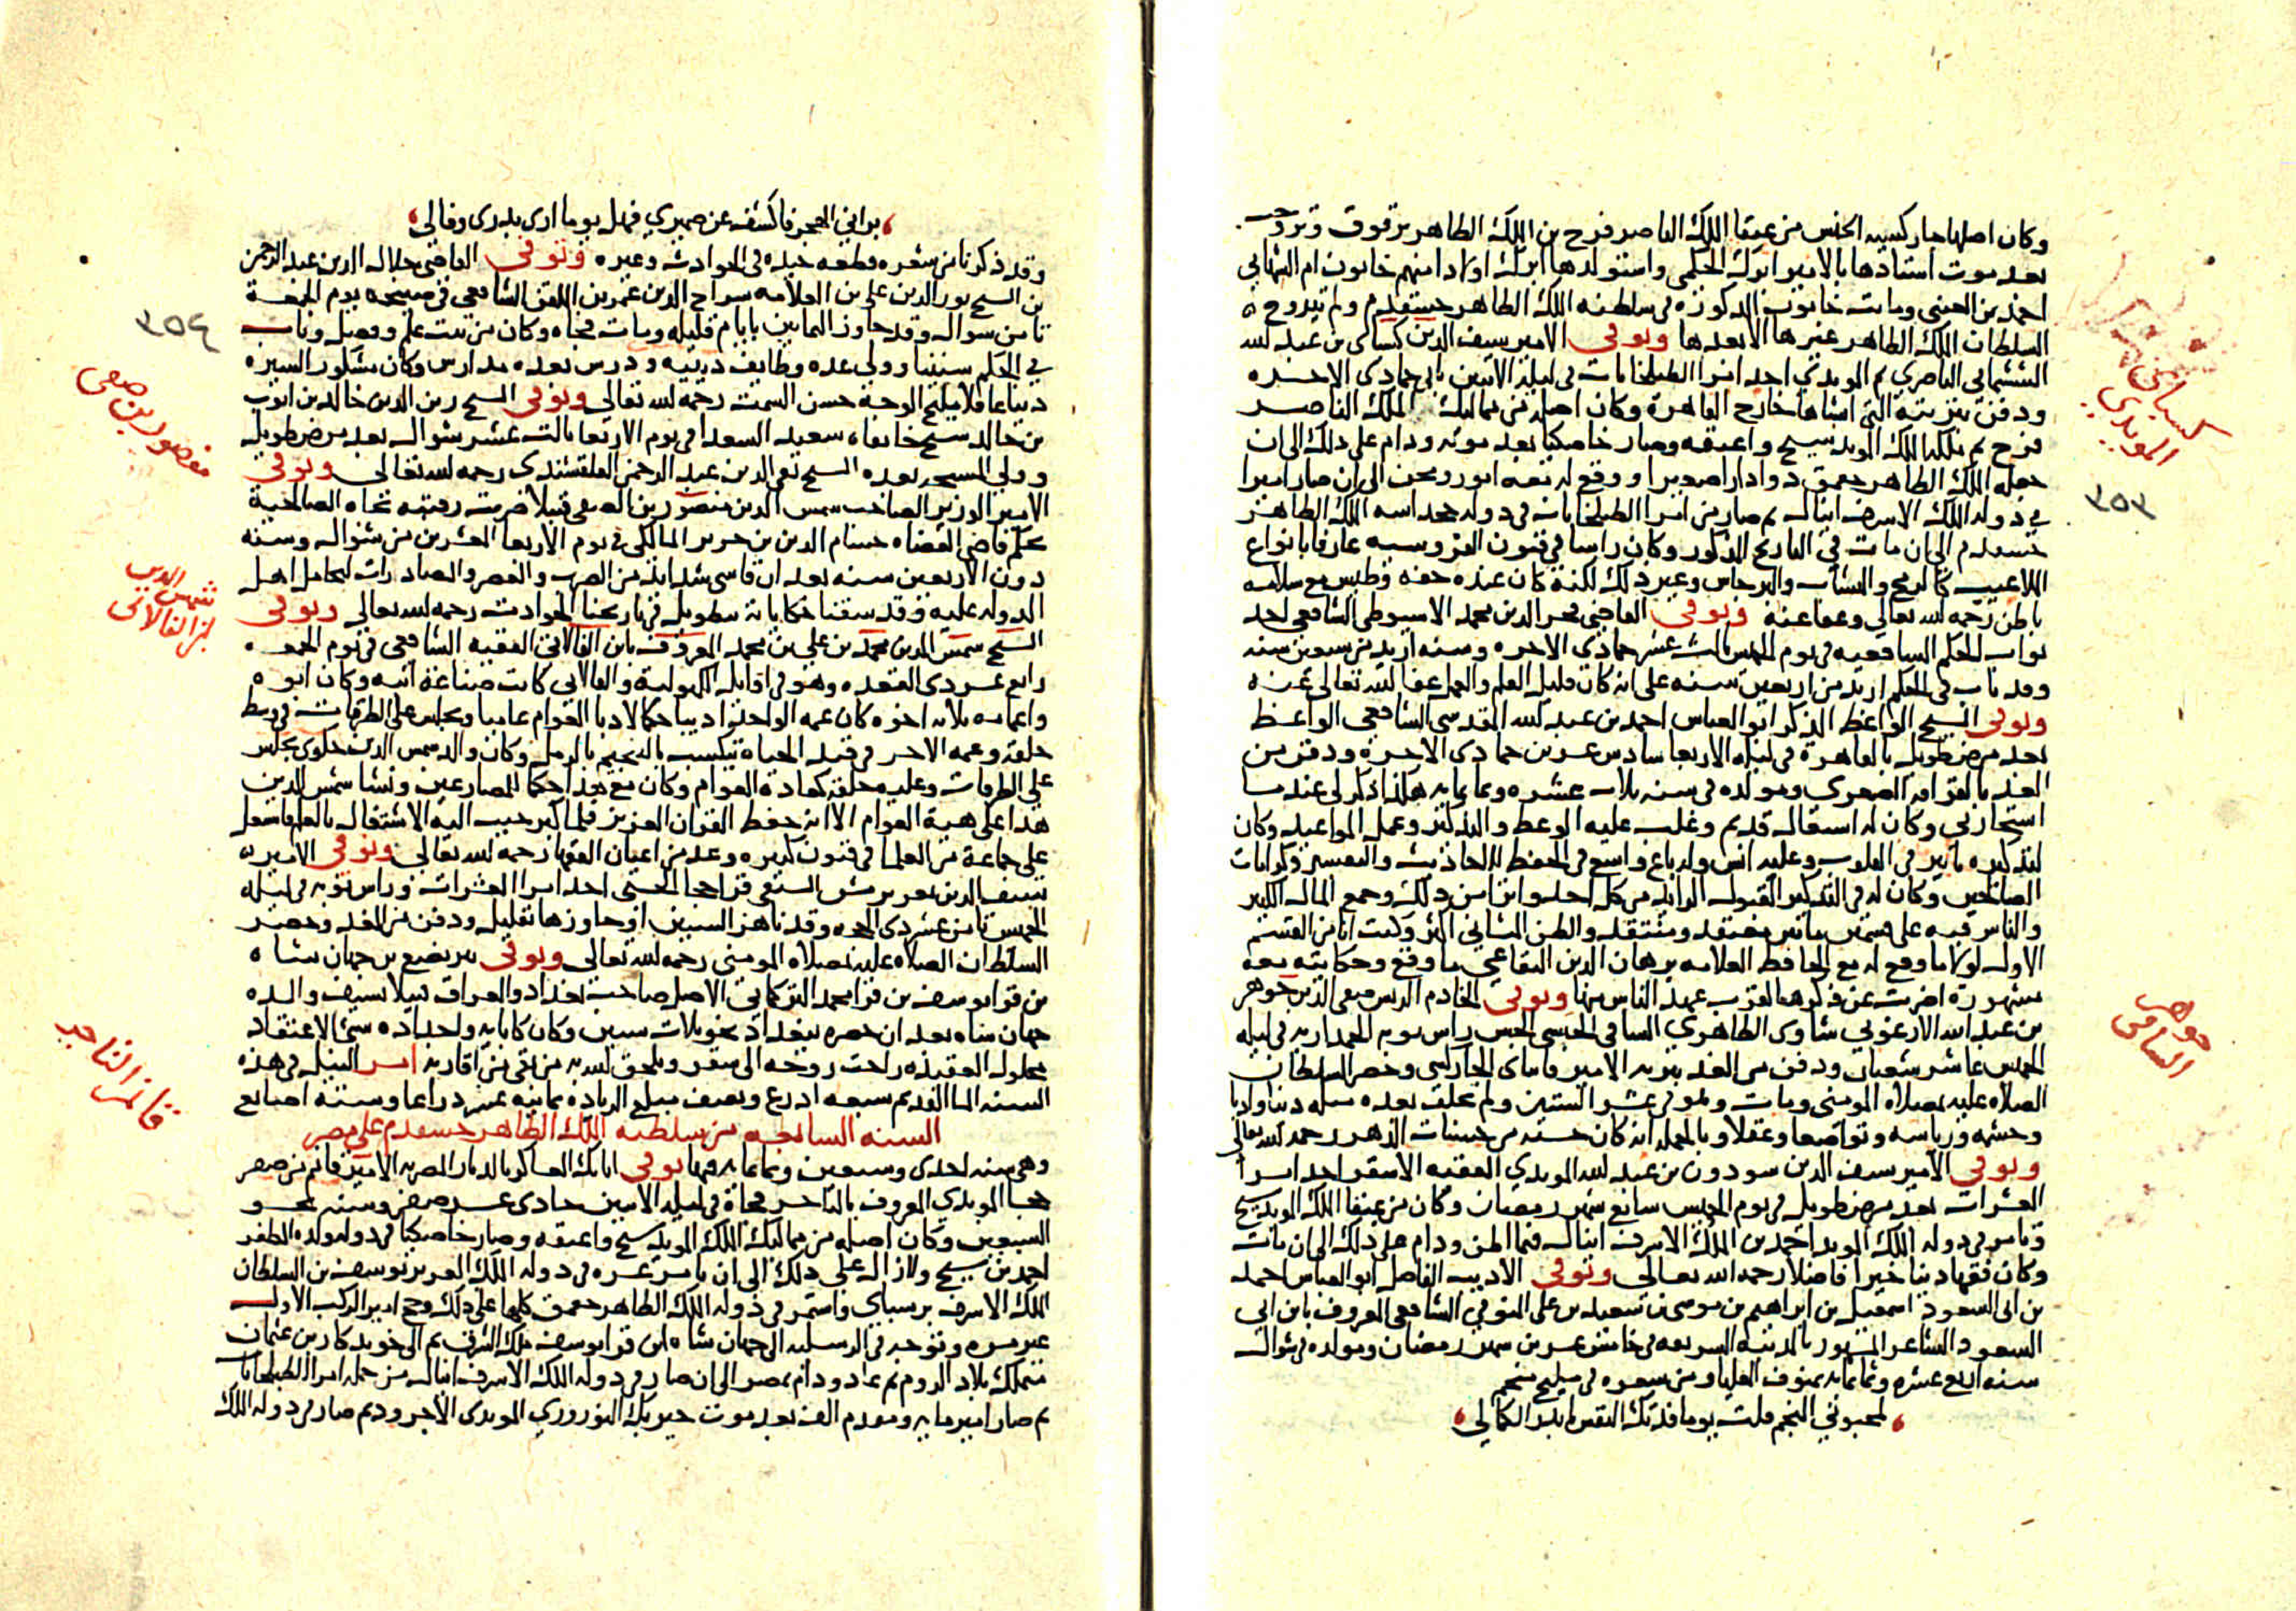 وكان اصلها جاركسية الجنس من عتقا الملك الناصر فرج بن الملك الظاهر برقوق وتزوجت
بعد موت استادها بالامير ابرك الجكمي واستولدها ابرك اولادا منهم خاتون ام الشهابي
احمد بن العيني وماتت خاتون المذكورة في سلطنة الملك الظاهر خشقدم ولم يتزوج
السلطان الملك الظاهر غيرها الا بعدها وتوفي الامير سيف الدين كسباي بن عبد الله
الششماني الناصري ثم المويدي احد امرا الطبلخانات في ليلة الاثنين ثاني جمادى الاخرة
ودفن بتربته التي انشاها خارج القاهرة وكان اصله من مماليك الملك الناصر
فرج ثم ملكه الملك المويد شيخ واعتقه وصار خاصكيا بعد موته ودام على ذلك الى ان
جعله الملك الظاهر جقمق دوادارا صغيرا ووقع له بعده امور ومحن الى ان صار اميرا
في دولة الملك الاشرف اينال ثم صار من امرا الطبلخانات في دولة حمداسه الملك الظاهر
خشقدم الى ان مات في التاريخ المذكور وكان راسا في فنون الفروسية عارفا بانواع
الملاعيب كالرمح والنشاب والبرجاس وغير ذلك لكنه كان عنده خفة وطيش مع سلامة
باطن رحمه الله تعالى وعفا عنه وتوفي القاضي محمد الدين محمد الاسيوطي الشافعي احد
نواب الحكم الشافعية في يوم الخميس ثالث عشر جمادى الاخرة وسنه ازيد من سبعين سنة
وقد ناب في الحكم ازيد من اربعين سنة على انه كان قليل العلم والعمل عفا الله تعالى عنه
وتوفي الشيخ الواعظ المذكر ابو العباس احمد بن عبد الله المقدسي الشافعي الواعظ
بعد مرض طويل بالقاهرة في ليلة الاربعا سادس عشرين جمادى الاخرة ودفن من
الغد بالقرافة الصغرى ومولده في سنة ثلاث عشرة وثمانماية هكذا ذكر لي عندما
استجازني وكان له اشتغال قديم وغلب عليه الوعظ والتذكير وعمل المواعيد وكان
لتذكيره تاثير في القلوب وعليه انس وله باع واسع في الحفظ للاحاديث والتفسير وكرامات
الصالحين وكان له في التذكير القبول الزايد من كل احد واثرى من ذلك وجمع المال الكثير
والناس فيه على قسمين ما بين معتقد ومنتقد والظن الثاني اكثر وكنت انا من القسم
الاول لولا ما وقع له مع الحافظ العلامة برهان الدين البقاعي ما وقع وحكايته معه
مشهورة اضربت عن ذكرها لقرب عهد الناس منها وتوفي الخادم الريس صفي الدين جوهر
بن عبد الله الارغوني شاوي الظاهري الساقي الحبشي الجنس راس نوبة الجمدارية في ليلة
الخميس عاشر شعبان ودفن من الغد بتربة الامير قانباي الجاركسي وحضر السلطان
الصلاة عليه بمصلاة المومني ومات وهو في عشر الستين ولم يخلف بعده مثله دينا وادبا
وحشمة ورياسة وتواضعا وعقلا وبالجملة انه كان حسنة من حسنات الدهر رحمه الله تعالى
وتوفي الامير سيف الدين سودون بن عبد الله المويدي الفقيه الاشقر احد امرا
العشرات بعد مرض طويل في يوم الخميس سابع شهر رمضان وكان من عتقا الملك المويد شيخ
وتامر في دولة الملك المويد احمد بن الملك الاشرف اينال فيما اظن ودام على ذلك الى ان مات
وكان فقيها دينا خيرا فاضلا رحمه الله تعالى وتوفي الاديب الفاضل ابو العباس احمد
بن ابي السعود اسمعيل بن ابراهيم بن موسى بن سعيد بن علي المنوفي الشافعي المعروف بابن ابي
السعود الشاعر المشهور بالمدينة الشريفة في خامس عشرين شهر رمضان ومولده في شوال
سنة اربع عشرة وثمانماية بمنوف العليا ومن شعره في مليح منجم
لمحبوبي المنجم قلت يوما فدتك النفس يا بدر الكمال
كسباي الششماني المويدي
٣٥٣
جوهر الساقي
براني الهجر فاكشف عن ضميري فهل يوما ارى بدري وفا لي
وقد ذكرنا من شعره قطعة جيدة في الحوادث وغيره وتوفي القاضي جلال الدين عبد الرحمن
بن الشيخ نور الدين علي بن العلامة سراج الدين عمر بن الملقن الشافعي في صبيحة يوم الجمعة
ثامن شوال وقد جاوز الثمانين بايام قليلة ومات فجاة وكان من بيت علم وفضل وناب
في الحكم سنينا وولي عدة وظايف دينية ودرس بعده مدارس وكان مشكور السيرة
دينا عاقلا مليح الوجه حسن السمت رحمه الله تعالى وتوفي الشيخ زين الدين خالد بن ايوب
بن خالد شيخ خانقاه سعيد السعدا في يوم الاربعا ثالث عشر شوال بعد مرض طويل
وولي المشيخة بعده الشيخ تقي الدين عبد الرحمن القلقشندي رحمه الله تعالى وتوفي
الامير الوزير الصاحب شمس الدين منصور بن الصفي قتيلا ضربت رقبته تجاه الصالحية
بحكم قاضي القضاه حسام الدين بن حريز المالكي في يوم الاربعا العشرين من شوال وسنه
دون الاربعين سنة بعد ان قاسى شدايد من الضرب والعصر والمصادرات لتحامل اهل
الدولة عليه وقد سقنا حكاياته بطويله في تاريخنا الحوادث رحمه الله تعالى وتوفي
الشيخ شمس الدين محمد بن علي بن محمد المعروف بابن الفالاتي الفقيه الشافعي في يوم الجمعة
رابع عشر ذي القعدة وهو في اوايل الكهولية والفالاتي كانت صناعة ابيه وكان ابوه
واعمامه ثلاثة اخوة كان عمه الواحد اديبا حكاك لادبا العوام عاميا ويجلس على الطرقات في وسط
حلقة وعمه الاخر في قيد الحياة يتكسب بالتنجيم بالرمل وكان والد شمس الدين حلوى يجلس
على الطرقات وعليه حلقة كعادة العوام وكان مع هذا حكما للمصارعين ونشا شمس الدين
هذا على هية العوام الا انه حفظ القران العزيز فلما كبر حبب اليه الاشتغال بالعلم فاشتغل
على جماعة من العلما في فنون كثيرة وعد من اعيان الفقها رحمه الله تعالى وتوفي الامير
سيف الدين تغري برمش السيفي قراخجا الحسني احد امرا العشرات وراس نوبة في ليلة
الخميس ثامن عشر ذي الحجة وقد ناهز الستين او جاوزها بقليل ودفن من الغد وحضر
السلطان الصلاة عليه بمصلاة المومني رحمه الله تعالى وتوفي بير بضع بن جهان شاه
بن قرا يوسف بن قرا محمد التركماني الاصل صاحب بغداد والعراق قتيلا بسيف والده
جهان شاه بعد ان حصره ببغداد نحو ثلاث سنين وكان كابايه واجداده سيئ الاعتقاد
محلول العقيدة راحت روحه الى سقر ويلحق الله به من بقي من اقاربه امر النيل في هذه
السنة الما القديم سبعة اذرع ونصف مبلغ الزيادة ثمانية عشر ذراعا وستة اصابع
السنة السابعة من سلطنة الملك الظاهر خشقدم على مصر
وهي سنة احدى وسبعين وثمانماية فيها توفي اتابك العساكر بالديار المصرية الامير قانم من صفر
خجا المويدي المعروف بالتاجر فجاة في ليلة الاثنين حادي عشر صفر وسنه نحو
السبعين وكان اصله من مماليك الملك المويد شيخ واعتقه وصار خاصكيا في دولة ولده المظفر
احمد بن شيخ ولا زال على ذلك الى ان تامر عشرة في دولة الملك العزيز يوسف بن السلطان
الملك الاشرف برسباي واستمر في دولة الملك الظاهر جقمق كلها على ذلك وحج امير الركب الاول
غير مرة وتوجه في الرسلية الى جهان شاه بن قرا يوسف ملك الشرق ثم الى خوندكار بن عثمان
متملك بلاد الروم ثم عاد ودام بمصر الى ان صار في دولة الملك الاشرف اينال من جملة امرا الطبلخانات
ثم صار امير ماية ومقدم الف بعد موت خير بك النوروزي المويدي الاجرود ثم صار في دولة الملك
٣٥٤
منصور بن صفي
شمس الدين بن الفالاتي
قانم التاجر